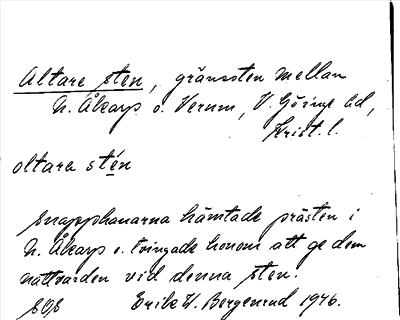 Altare sten, gränssten mellan
N. Åkarp o. Verum, V. Göinge hd,
Krist. l.
oltara stén
Snapphanarna hämtade prästen i
N. Åkarp o. tvingade honom att ge dem
nattvarden vid denna sten.
Erik W. Bergenrud 1946.